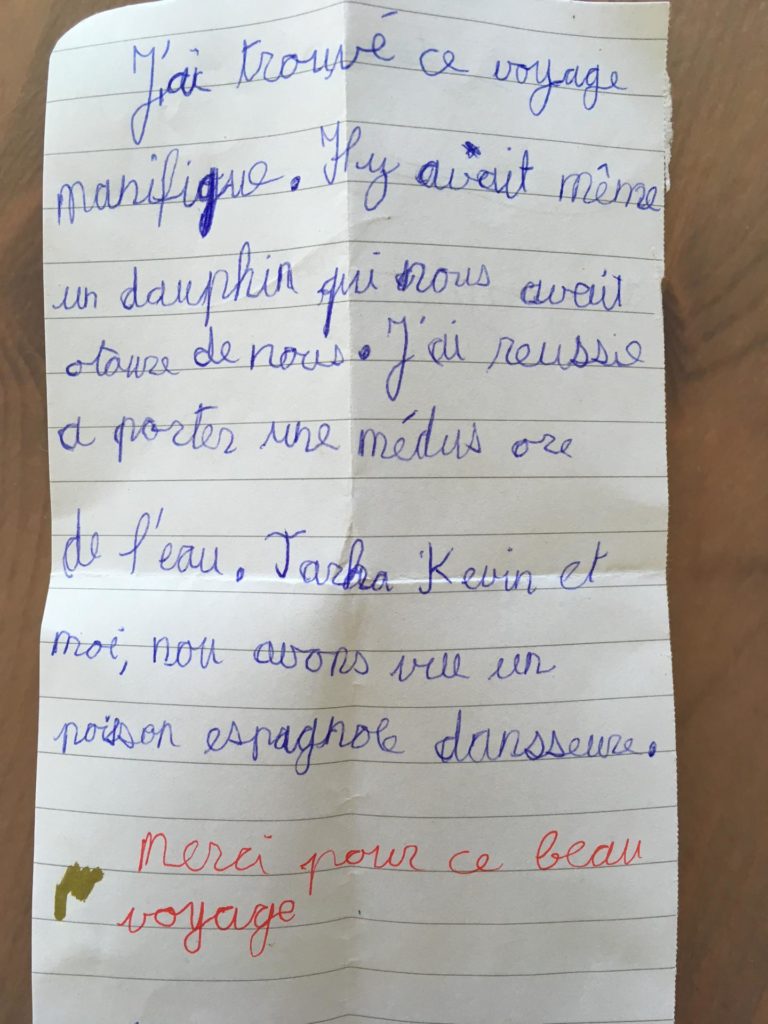 J'ai trouvé ce voyage
manifique. Il y avait même
un dauphin qui nous avait
otoure de nous. J'ai reussie
a porter une médus ore
de l'eau. Tarka Kevin et
moi, nou avons vue un
poisson espagnole dansseure.
Merci pour ce beau
voyage